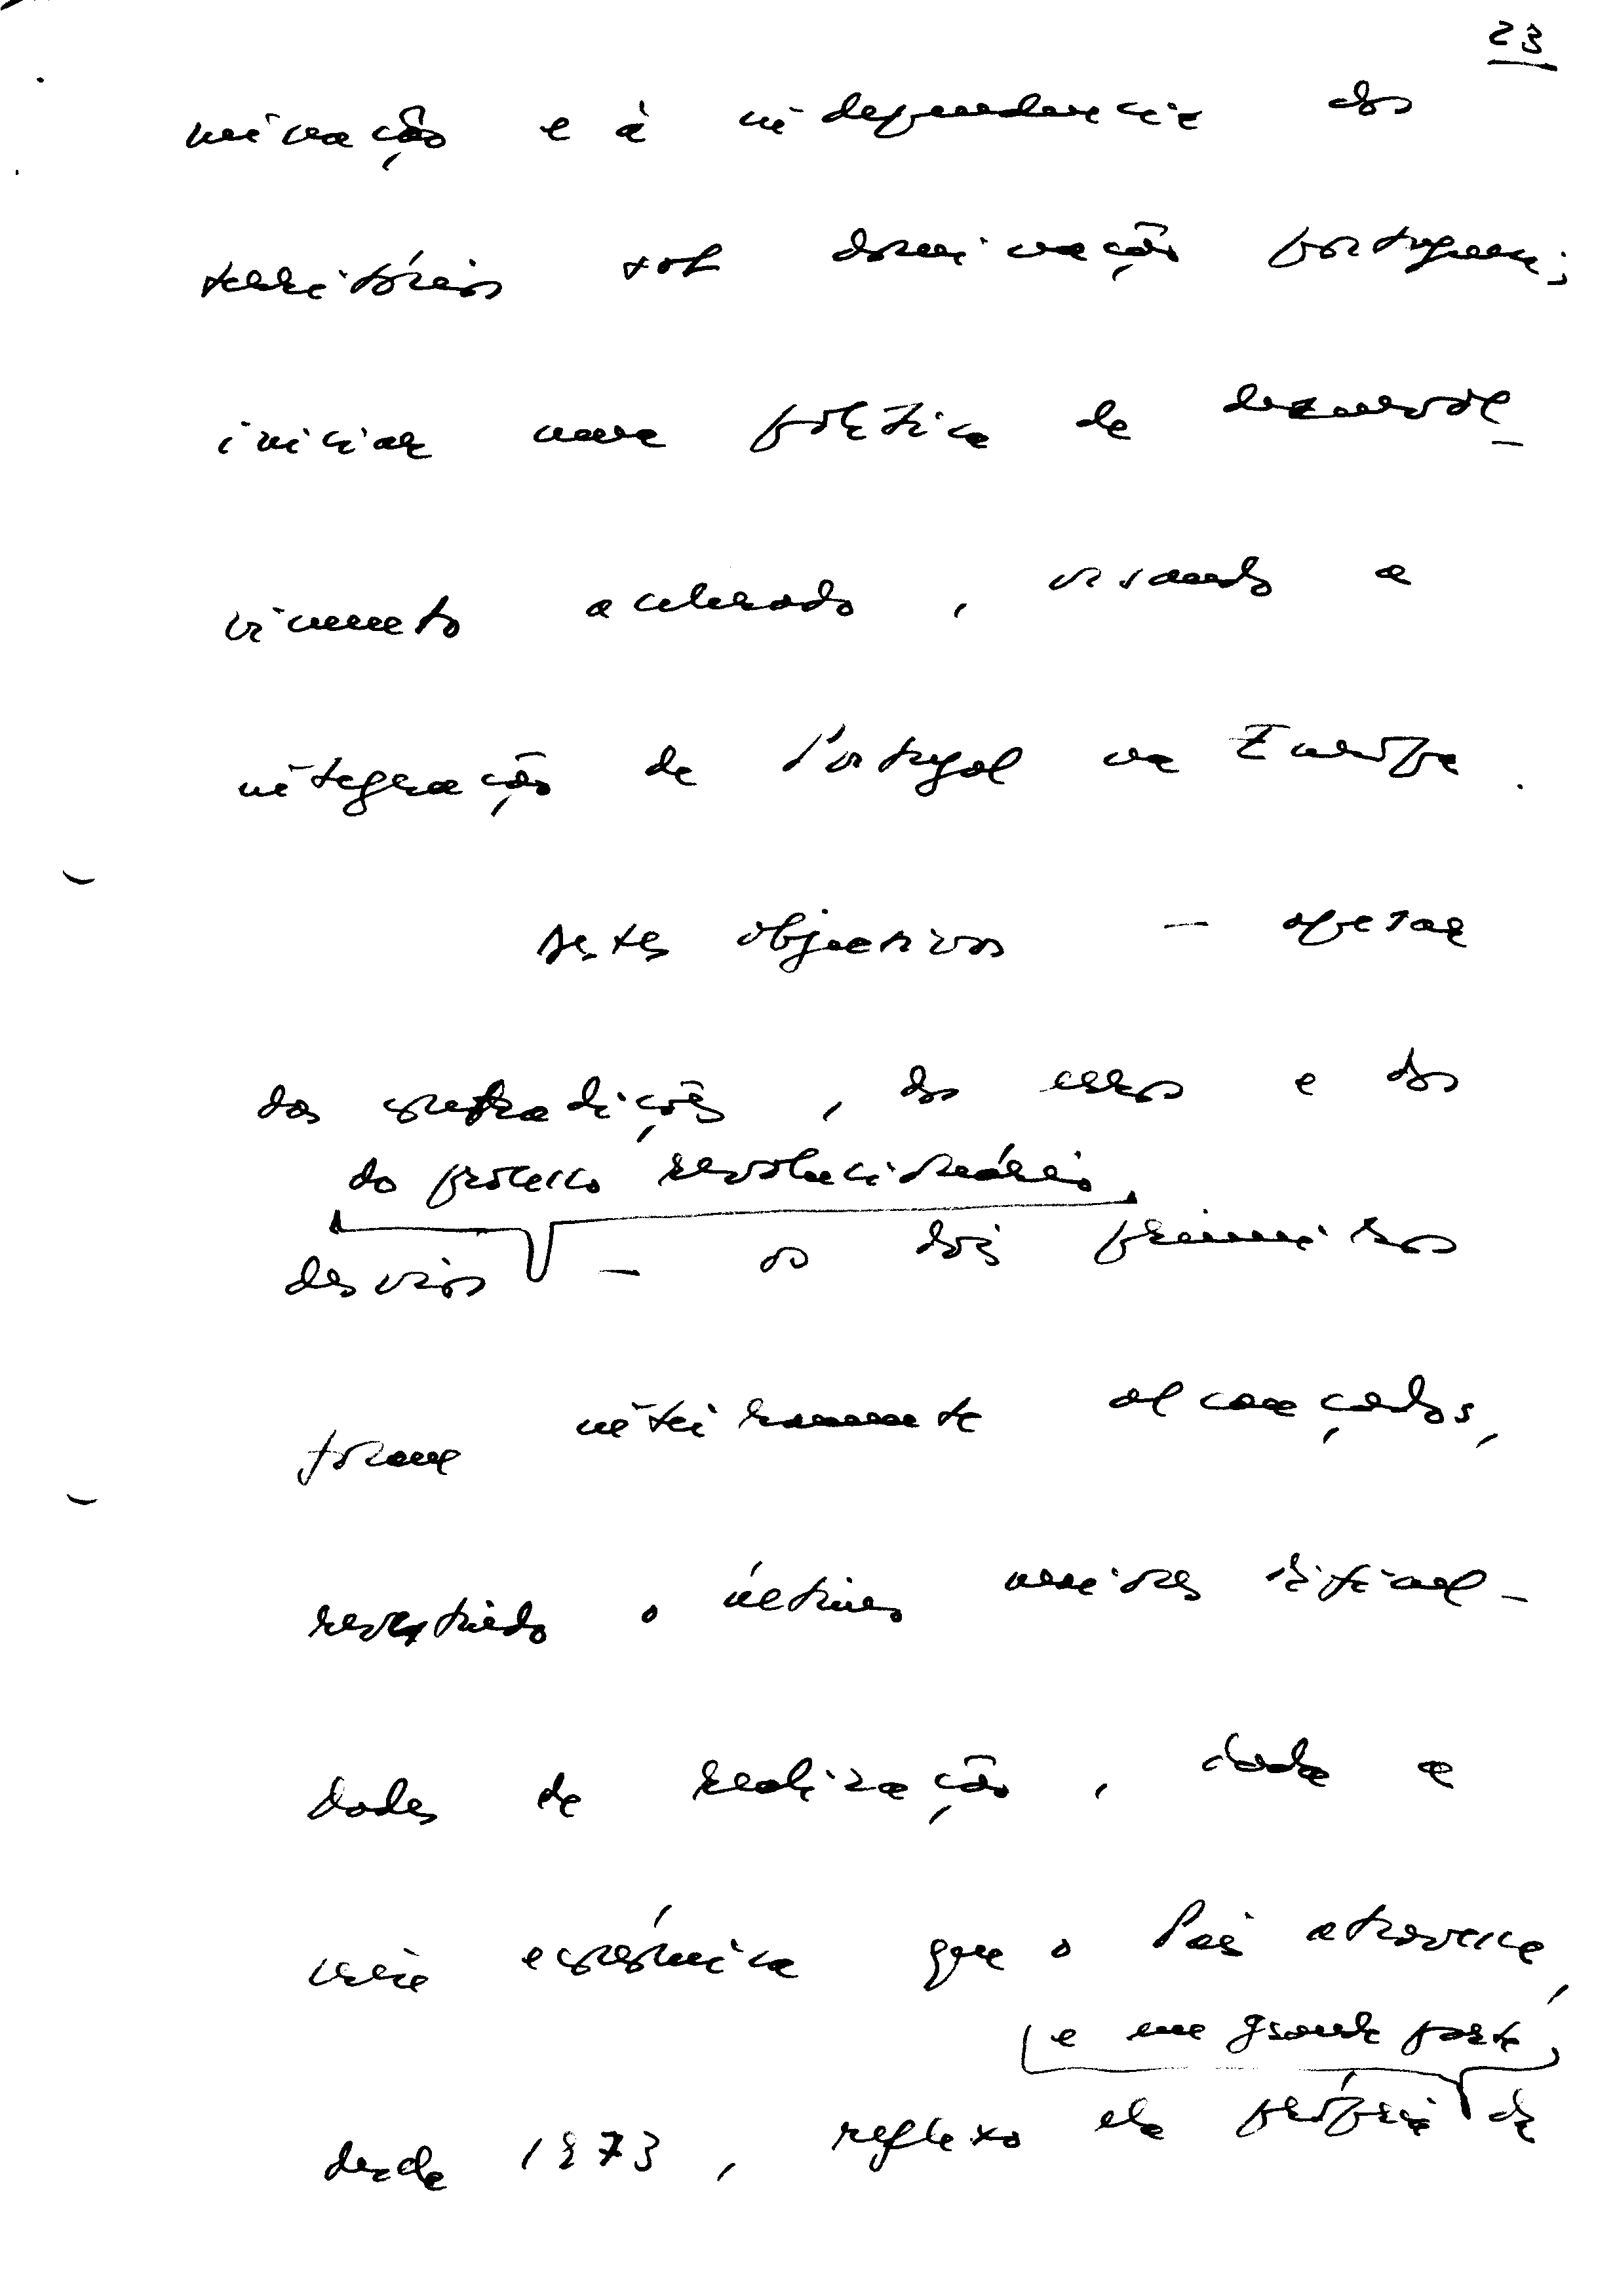 23
minação e à independência dos
territórios sob dominação portuguesa;
iniciar uma política de desenvol-
vimento acelerado, visando a
integração de Portugal na Europa.
Destes objectivos – apesar
das contradições, dos erros e dos
do processo revolucionário
desvios – os dois primeiros
foram inteiramente alcançados,
revestindo o último maiores dificul-
dades de realização, dada a
crise económica que o País atravessa,
e em grande parte
desde 1973, reflexo ela própria da